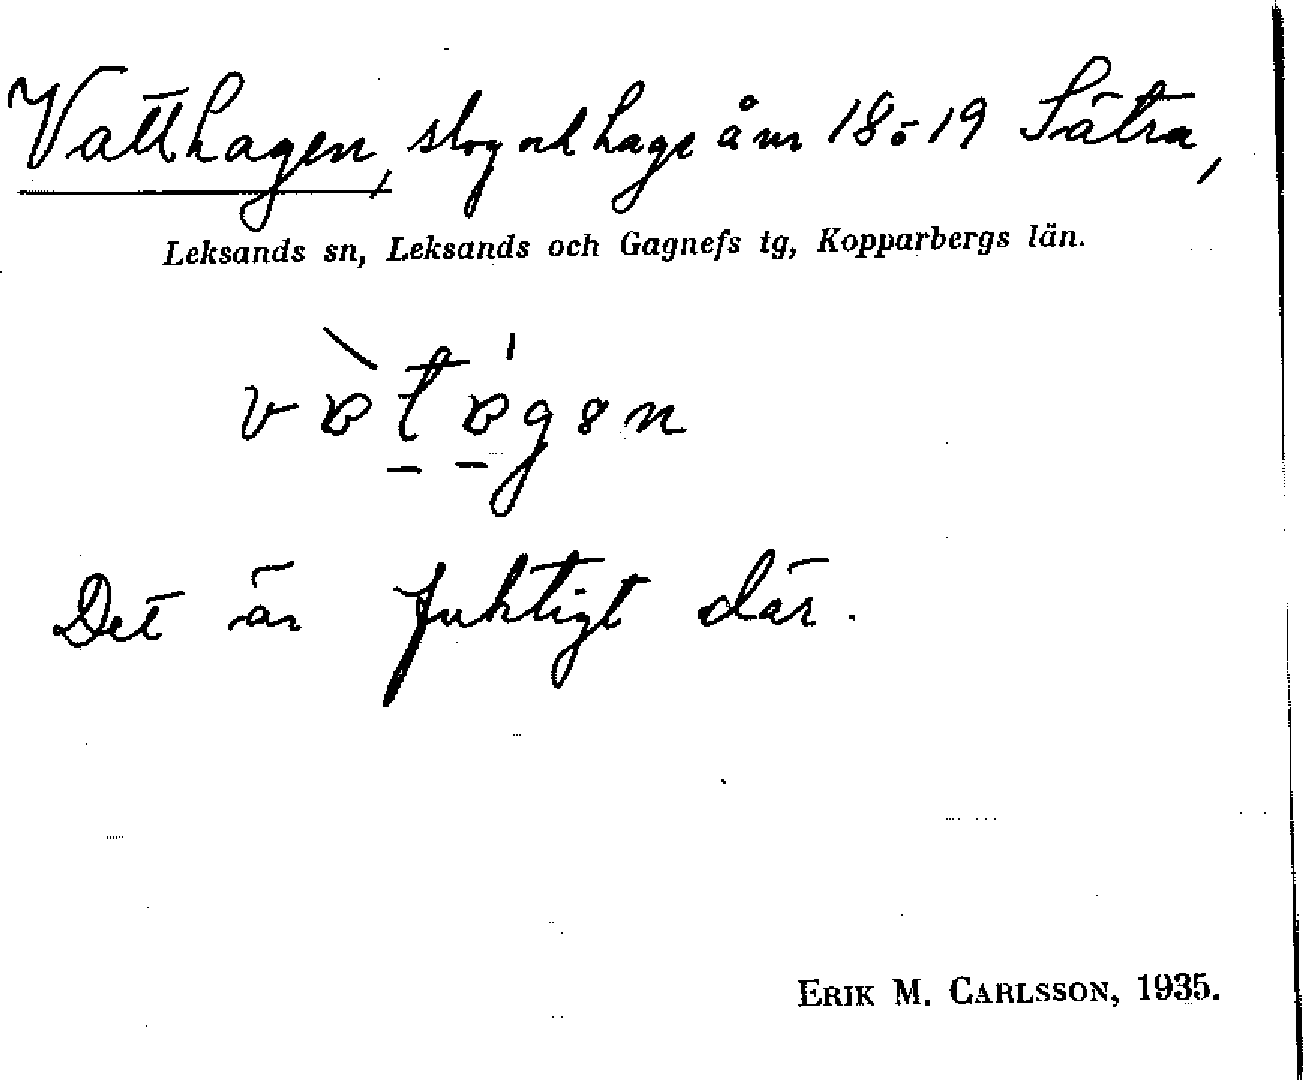 Vatthagen, skog o hage å nr 18 o 19 Sätra,
Leksands sn, Leksands och Gagnefs tg, Kopparbergs län.
Det är fuktigt där.
ERIK M. CARLSSON, 1935.